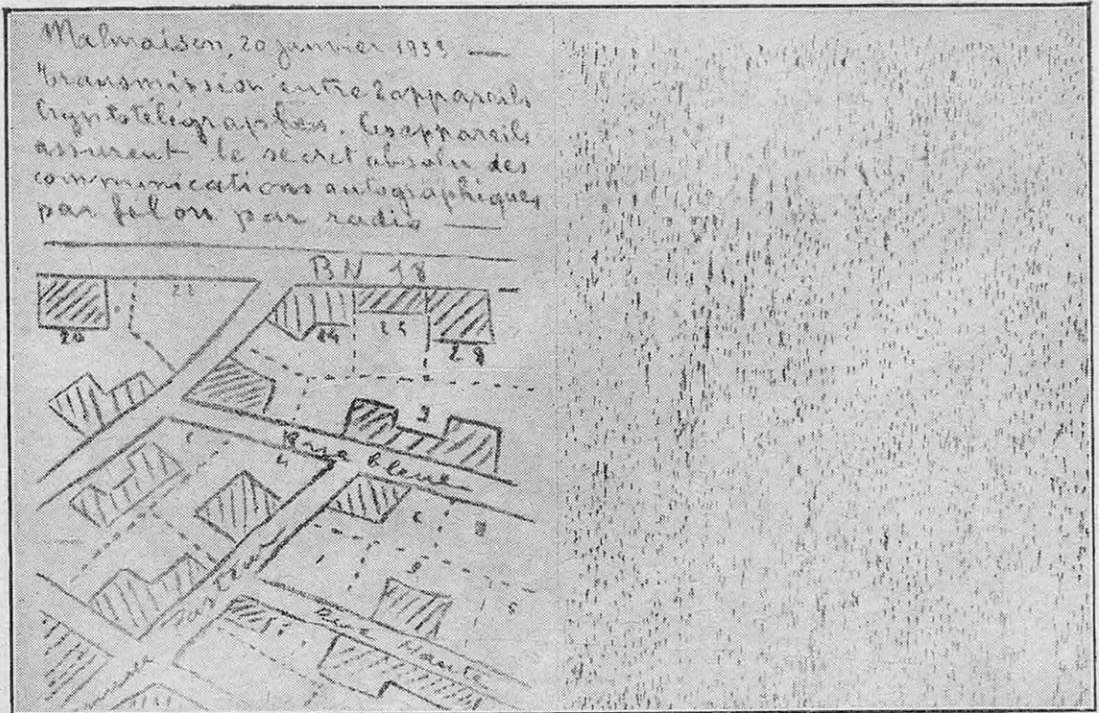 Malmaison, 20 janvier 1933 —
Transmission entre 2 appareils
Cryptotélégraphes. Ces appareils
assurent le secret absolu des
communications autographiques
par fil ou par radio —
BN 18
22
20
24
25
28
3
Rue bleue
4
6
8
1
9
5
Pasteur
Rue Haute